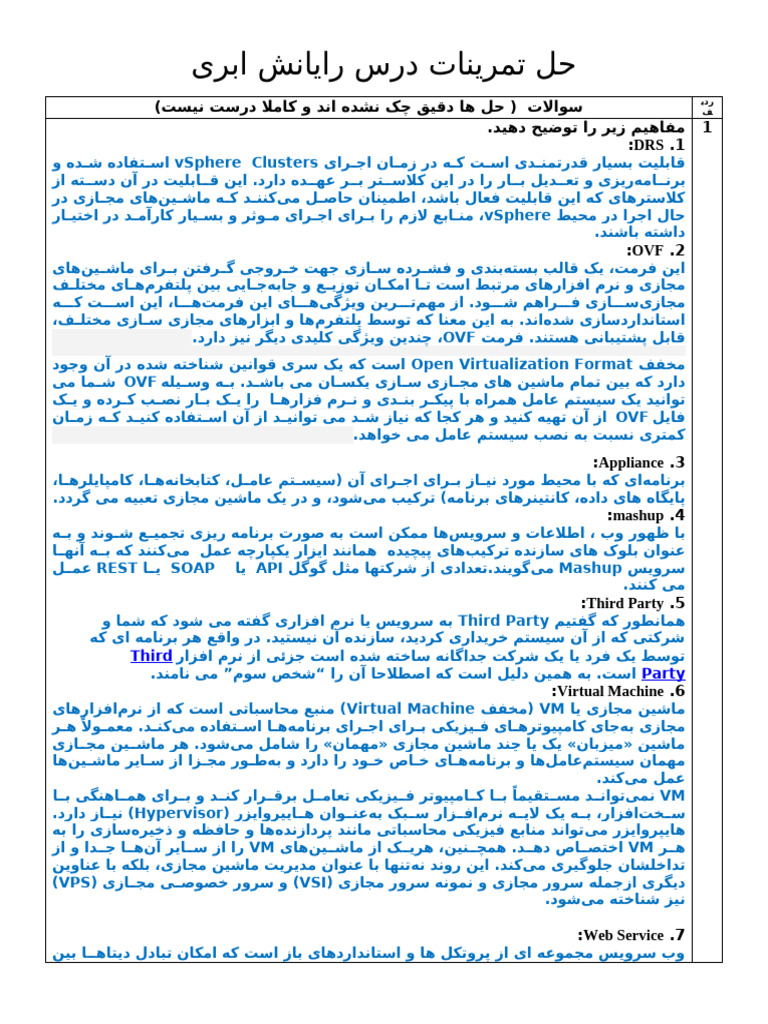 حل تمرینات درس رایانش ابری
ردیف
سوالات ( حل ها دقیق چک نشده اند و کاملا درست نیست)
1
مفاهیم زیر را توضیح دهید.
1. DRS:
قابلیت بسیار قدرتمندی است که در زمان اجرای vSphere Clusters استفاده شده و
برنامه‌ریزی و تعدیل بار را در این کلاستر بر عهده دارد. این قابلیت در آن دسته از
کلاسترهای که این قابلیت فعال باشد، اطمینان حاصل می‌کنند که ماشین‌های مجازی در
حال اجرا در محیط vSphere، منابع لازم را برای اجرای موثر و بسیار کارآمد در اختیار
داشته باشند.
2. OVF:
این فرمت، یک قالب بسته‌بندی و فشرده سازی جهت خروجی گرفتن برای ماشین‌های
مجازی و نرم افزارهای مرتبط است تا امکان توزیع و جابه‌جایی بین پلتفرم‌های مختلف
مجازی‌سازی فراهم شود. از مهم‌ترین ویژگی‌های این فرمت‌ها، این است که
استانداردسازی شده‌اند. به این معنا که توسط پلتفرم‌ها و ابزارهای مجازی سازی مختلف،
قابل پشتیبانی هستند. فرمت OVF، چندین ویژگی کلیدی دیگر نیز دارد.
مخفف Open Virtualization Format است که یک سری قوانین شناخته شده در آن وجود
دارد که بین تمام ماشین های مجازی سازی یکسان می باشد. به وسیله OVF شما می
توانید یک سیستم عامل همراه با پیکر بندی و نرم فزارها را یک بار نصب کرده و یک
فایل OVF از آن تهیه کنید و هر کجا که نیاز شد می توانید از آن استفاده کنید که زمان
کمتری نسبت به نصب سیستم عامل می خواهد.
3. Appliance:
برنامه‌ای که با محیط مورد نیاز برای اجرای آن (سیستم عامل، کتابخانه‌ها، کامپایلرها،
پایگاه های داده، کانتینرهای برنامه) ترکیب می‌شود، و در یک ماشین مجازی تعبیه می گردد.
4. mashup:
با ظهور وب ، اطلاعات و سرویس‌ها ممکن است به صورت برنامه ریزی تجمیع شوند و به
عنوان بلوک های سازنده ترکیب‌های پیچیده همانند ابزار یکپارچه عمل می‌کنند که به آنها
سرویس Mashup می‌گویند.تعدادی از شرکتها مثل گوگل API یا SOAP یا REST عمل
می کنند.
5. Third Party:
همانطور که گفتیم Third Party به سرویس یا نرم افزاری گفته می شود که شما و
شرکتی که از آن سیستم خریداری کردید، سازنده آن نیستید. در واقع هر برنامه ای که
توسط یک فرد یا یک شرکت جداگانه ساخته شده است جزئی از نرم افزار Third
Party است. به همین دلیل است که اصطلاحا آن را “شخص سوم” می نامند.
6. Virtual Machine:
ماشین مجازی یا VM (مخفف Virtual Machine) منبع محاسباتی است که از نرم‌افزارهای
مجازی به‌جای کامپیوترهای فیزیکی برای اجرای برنامه‌ها استفاده می‌کند. معمولاً هر
ماشین «میزبان» یک یا چند ماشین مجازی «مهمان» را شامل می‌شود. هر ماشین مجازی
مهمان سیستم‌عامل‌ها و برنامه‌های خاص خود را دارد و به‌طور مجزا از سایر ماشین‌ها
عمل می‌کند.
VM نمی‌تواند مستقیماً با کامپیوتر فیزیکی تعامل برقرار کند و برای هماهنگی با
سخت‌افزار، به یک لایه نرم‌افزار سبک به‌عنوان هایپروایزر (Hypervisor) نیاز دارد.
هایپروایزر می‌تواند منابع فیزیکی محاسباتی مانند پردازنده‌ها و حافظه و ذخیره‌سازی را به
هر VM اختصاص دهد. همچنین، هریک از ماشین‌های VM را از سایر آن‌ها جدا و از
تداخلشان جلوگیری می‌کند. این روند نه‌تنها با عنوان مدیریت ماشین مجازی، بلکه با عناوین
دیگری ازجمله سرور مجازی و نمونه سرور مجازی (VSI) و سرور خصوصی مجازی (VPS)
نیز شناخته می‌شود.
7. Web Service:
وب سرویس مجموعه ای از پروتکل ها و استانداردهای باز است که امکان تبادل دیتاها بین